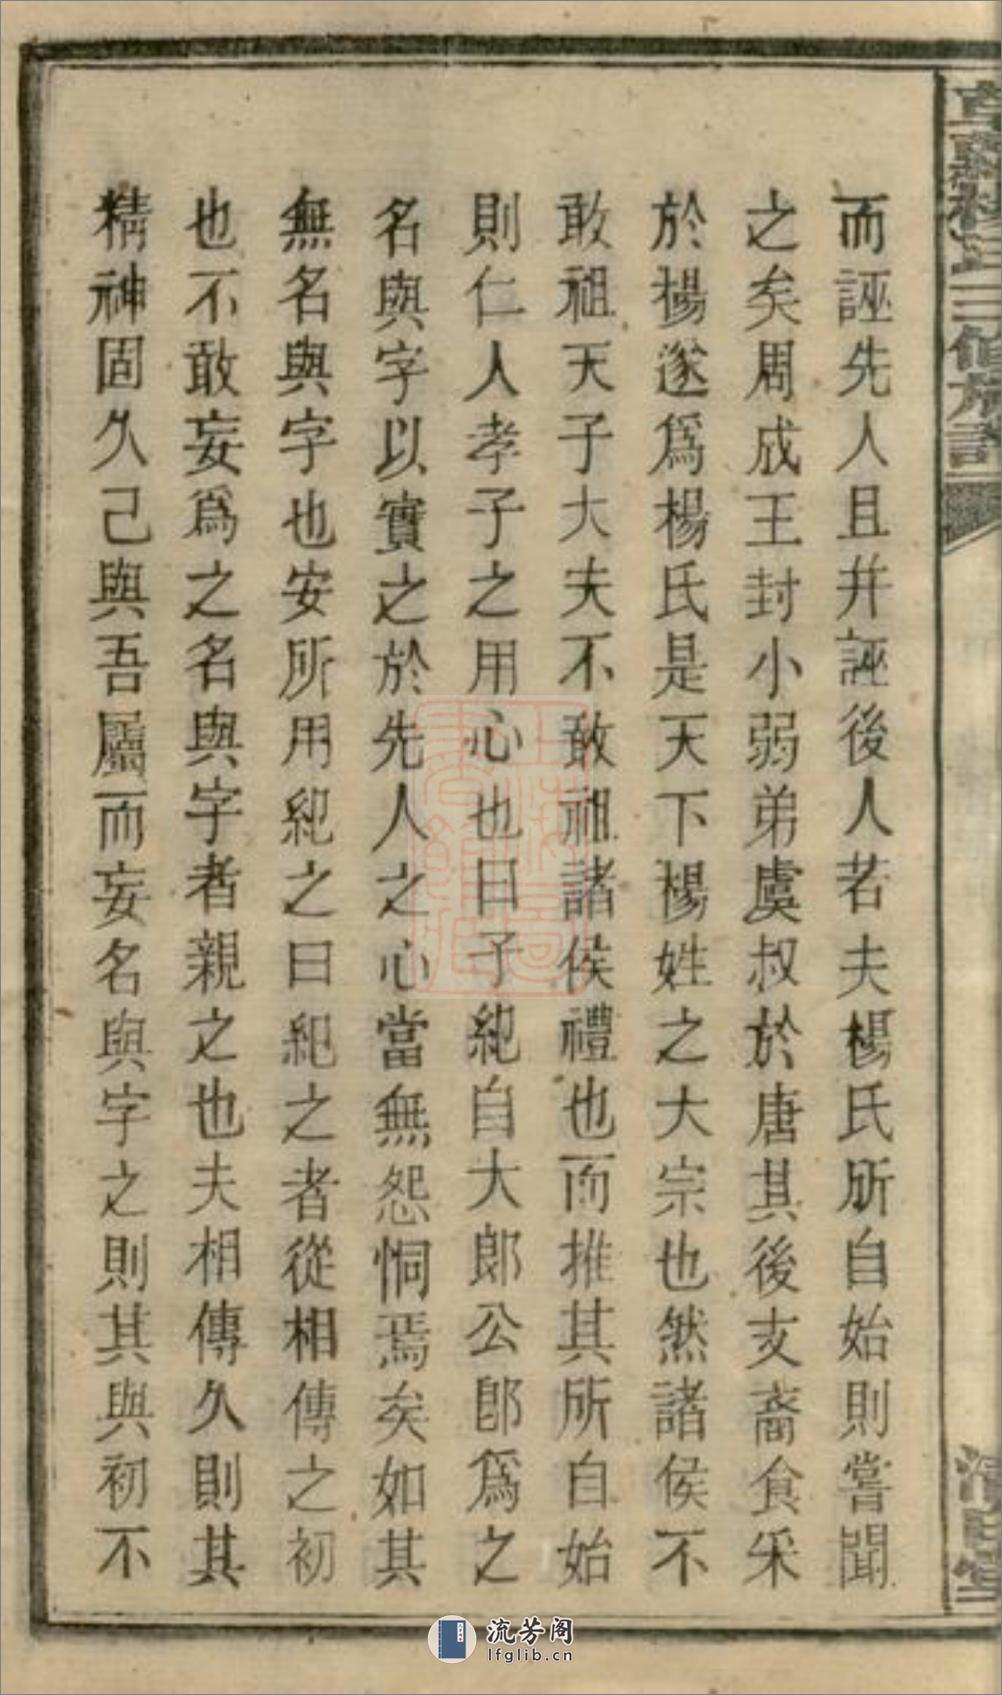 而誣先人且并誣後人若夫楊氏所自始則嘗聞
之矣周成王封小弱弟虞叔於唐其後支裔食采
於楊遂爲楊氏是天下楊姓之大宗也然諸侯不
敢祖天子大夫不敢祖諸侯禮也而推其所自始
則仁人孝子之用心也曰予紀自大郎公卽爲之
名與字以實之於先人之心當無怨恫焉矣如其
無名與字也安所用紀之曰紀之者從相傳之初
也不敢妄爲之名與字者親之也夫相傳久則其
精神固久已與吾屬而妄名與字之則其與初不
三修族譜
清白堂
流芳阁
lfglib.cn